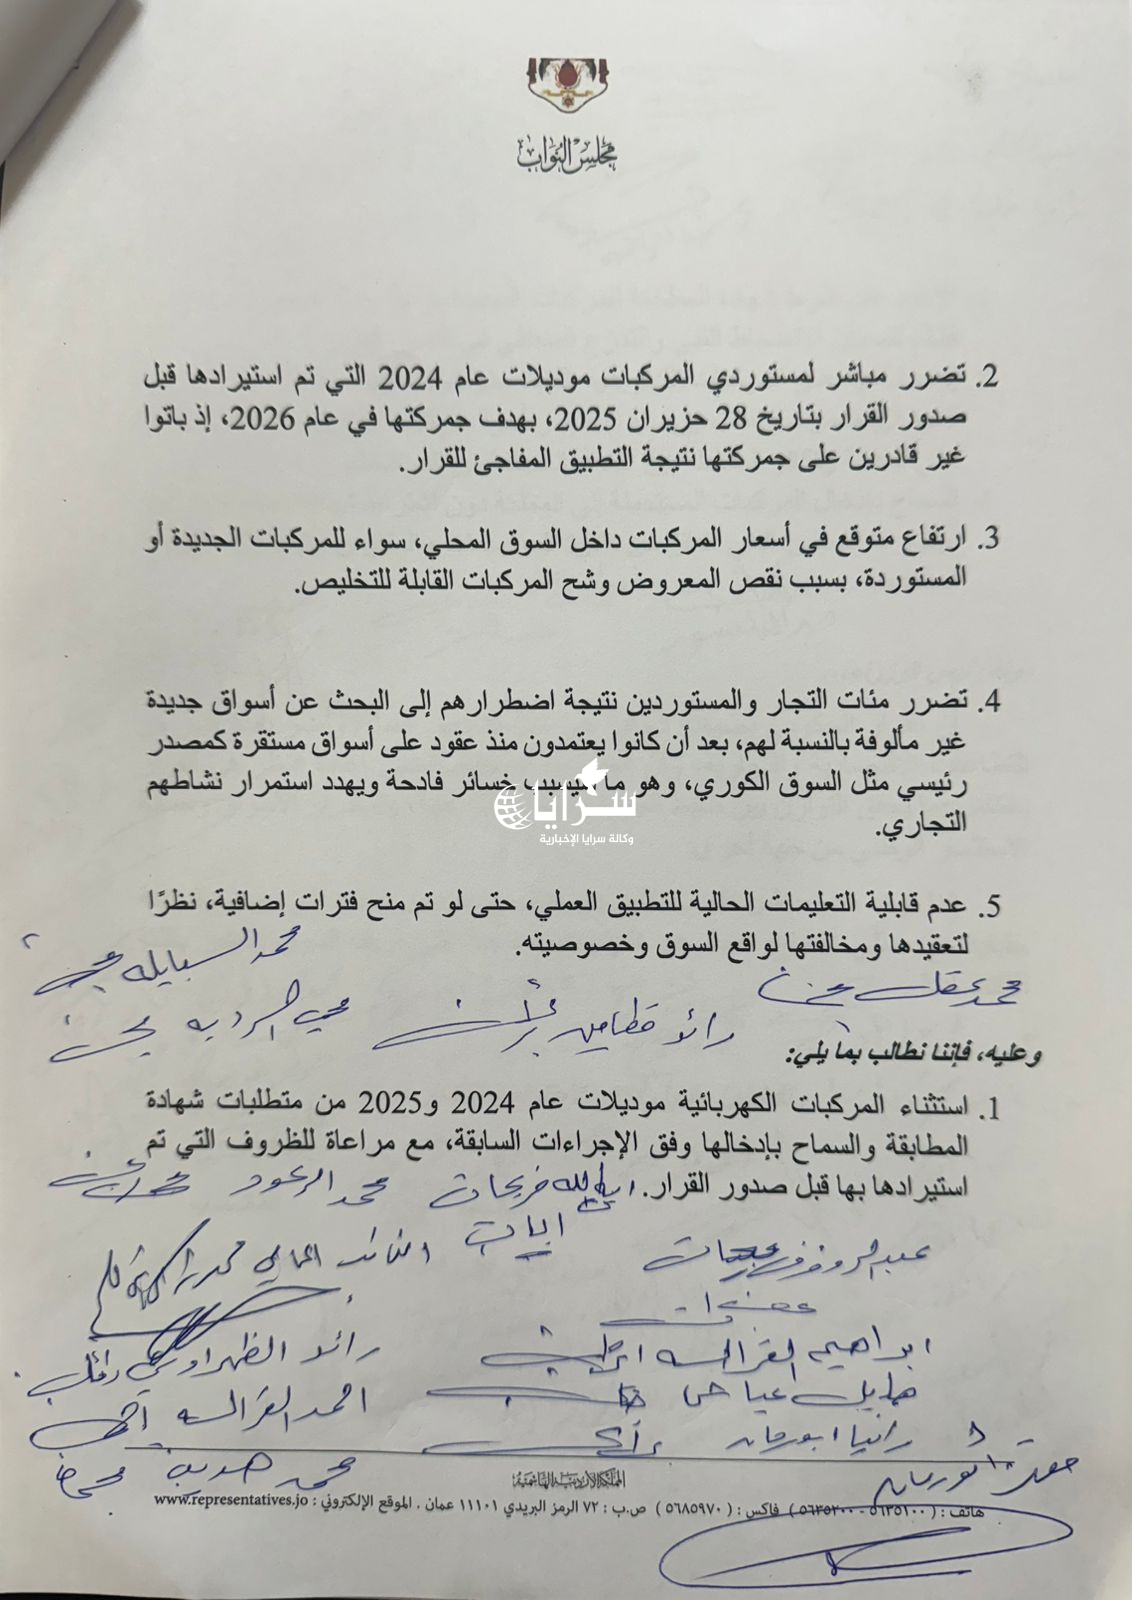 مجلس النواب
2. تضرر مباشر لمستوردي المركبات موديلات عام 2024 التي تم استيرادها قبل
صدور القرار بتاريخ 28 حزيران 2025، بهدف جمركتها في عام 2026، إذ باتوا
غير قادرين على جمركتها نتيجة التطبيق المفاجئ للقرار.
3. ارتفاع متوقع في أسعار المركبات داخل السوق المحلي، سواء للمركبات الجديدة أو
المستوردة، بسبب نقص المعروض وشح المركبات القابلة للتخليص.
4. تضرر مئات التجار والمستوردين نتيجة اضطرارهم إلى البحث عن أسواق جديدة
غير مألوفة بالنسبة لهم، بعد أن كانوا يعتمدون منذ عقود على أسواق مستقرة كمصدر
رئيسي مثل السوق الكوري، وهو ما سيسبب خسائر فادحة ويهدد استمرار نشاطهم
التجاري.
سرايا
وكالة سرايا الإخبارية
5. عدم قابلية التعليمات الحالية للتطبيق العملي، حتى لو تم منح فترات إضافية، نظرًا
لتعقيدها ومخالفتها لواقع السوق وخصوصيته.
محمد السبايله
محمد عقل
رائد قطامين
وعليه، فإننا نطالب بما يلي:
1. استثناء المركبات الكهربائية موديلات عام 2024 و2025 من متطلبات شهادة
المطابقة والسماح بإدخالها وفق الإجراءات السابقة، مع مراعاة للظروف التي تم
استيرادها بها قبل صدور القرار.
فريحات محمد الرعود
ابراهيم القرالسه
رائد الظهراوي
احمد القرالسه
رانيا ابو رمان
محمد هديب
المملكة الأردنية الهاشمية
هاتف : ( ٥٦٣٥١٠٠ - ٥٦٣٥٢٠٠ ) فاكس : ( ٥٦٨٥٩٧٠ ) ص.ب : ٧٢ الرمز البريدي ١١١٠١ عمان . الموقع الإلكتروني : www.representatives.jo